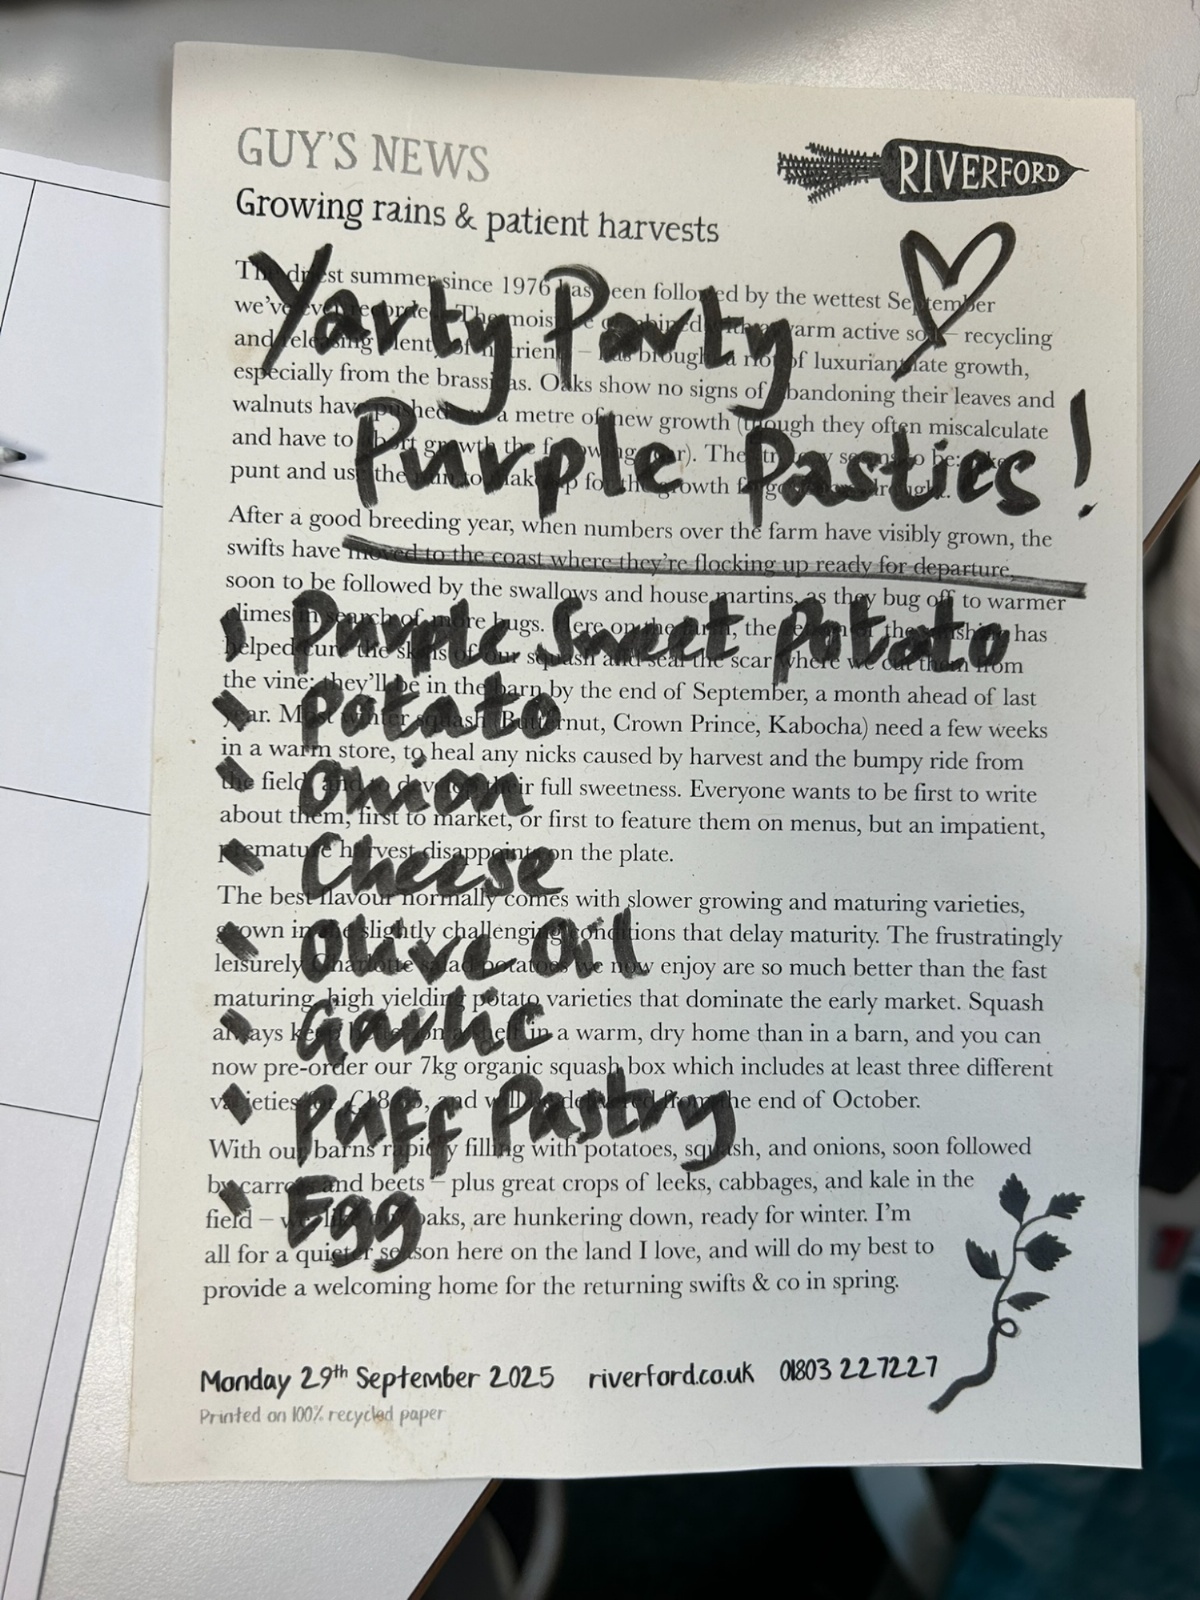 GUY'S NEWS
RIVERFORD
Growing rains & patient harvests
Yarty Party
Purple Pasties!
Purple Sweet Potato
Potato
Onion
Cheese
Olive Oil
Garlic
Puff Pastry
Egg
The driest summer since 1976 has been followed by the wettest September
we've ever recorded. The moisture combined with a warm active soil – recycling
and releasing plenty of nutrients – has brought a riot of luxuriant late growth,
especially from the brassicas. Oaks show no signs of abandoning their leaves and
walnuts have pushed a metre of new growth (though they often miscalculate
and have to abort growth the following year). The strategy seems to be: take
punt and use the rain to make up for the growth forgone in drought.
After a good breeding year, when numbers over the farm have visibly grown, the
swifts have moved to the coast where they're flocking up ready for departure,
soon to be followed by the swallows and house martins, as they bug off to warmer
climes in search of more bugs. Here on the farm, the of the sunshine has
helped cure the skins of our squash and seal the scar where we cut them from
the vine; they'll be in the barn by the end of September, a month ahead of last
year. Most winter squash (Butternut, Crown Prince, Kabocha) need a few weeks
in a warm store, to heal any nicks caused by harvest and the bumpy ride from
the field, and to develop their full sweetness. Everyone wants to be first to write
about them, first to market, or first to feature them on menus, but an impatient,
premature harvest disappoints on the plate.
The best flavour normally comes with slower growing and maturing varieties,
grown in the slightly challenging conditions that delay maturity. The frustratingly
leisurely Charlotte salad potatoes we now enjoy are so much better than the fast
maturing, high yielding potato varieties that dominate the early market. Squash
always keep better on a shelf in a warm, dry home than in a barn, and you can
now pre-order our 7kg organic squash box which includes at least three different
varieties for and will be delivered from the end of October.
With our barns rapidly filling with potatoes, squash, and onions, soon followed
by carrots and beets – plus great crops of leeks, cabbages, and kale in the
field – we, like our oaks, are hunkering down, ready for winter. I'm
all for a quieter season here on the land I love, and will do my best to
provide a welcoming home for the returning swifts & co in spring.
Monday 29th September 2025 riverford.co.uk 01803 227227
Printed on 100% recycled paper